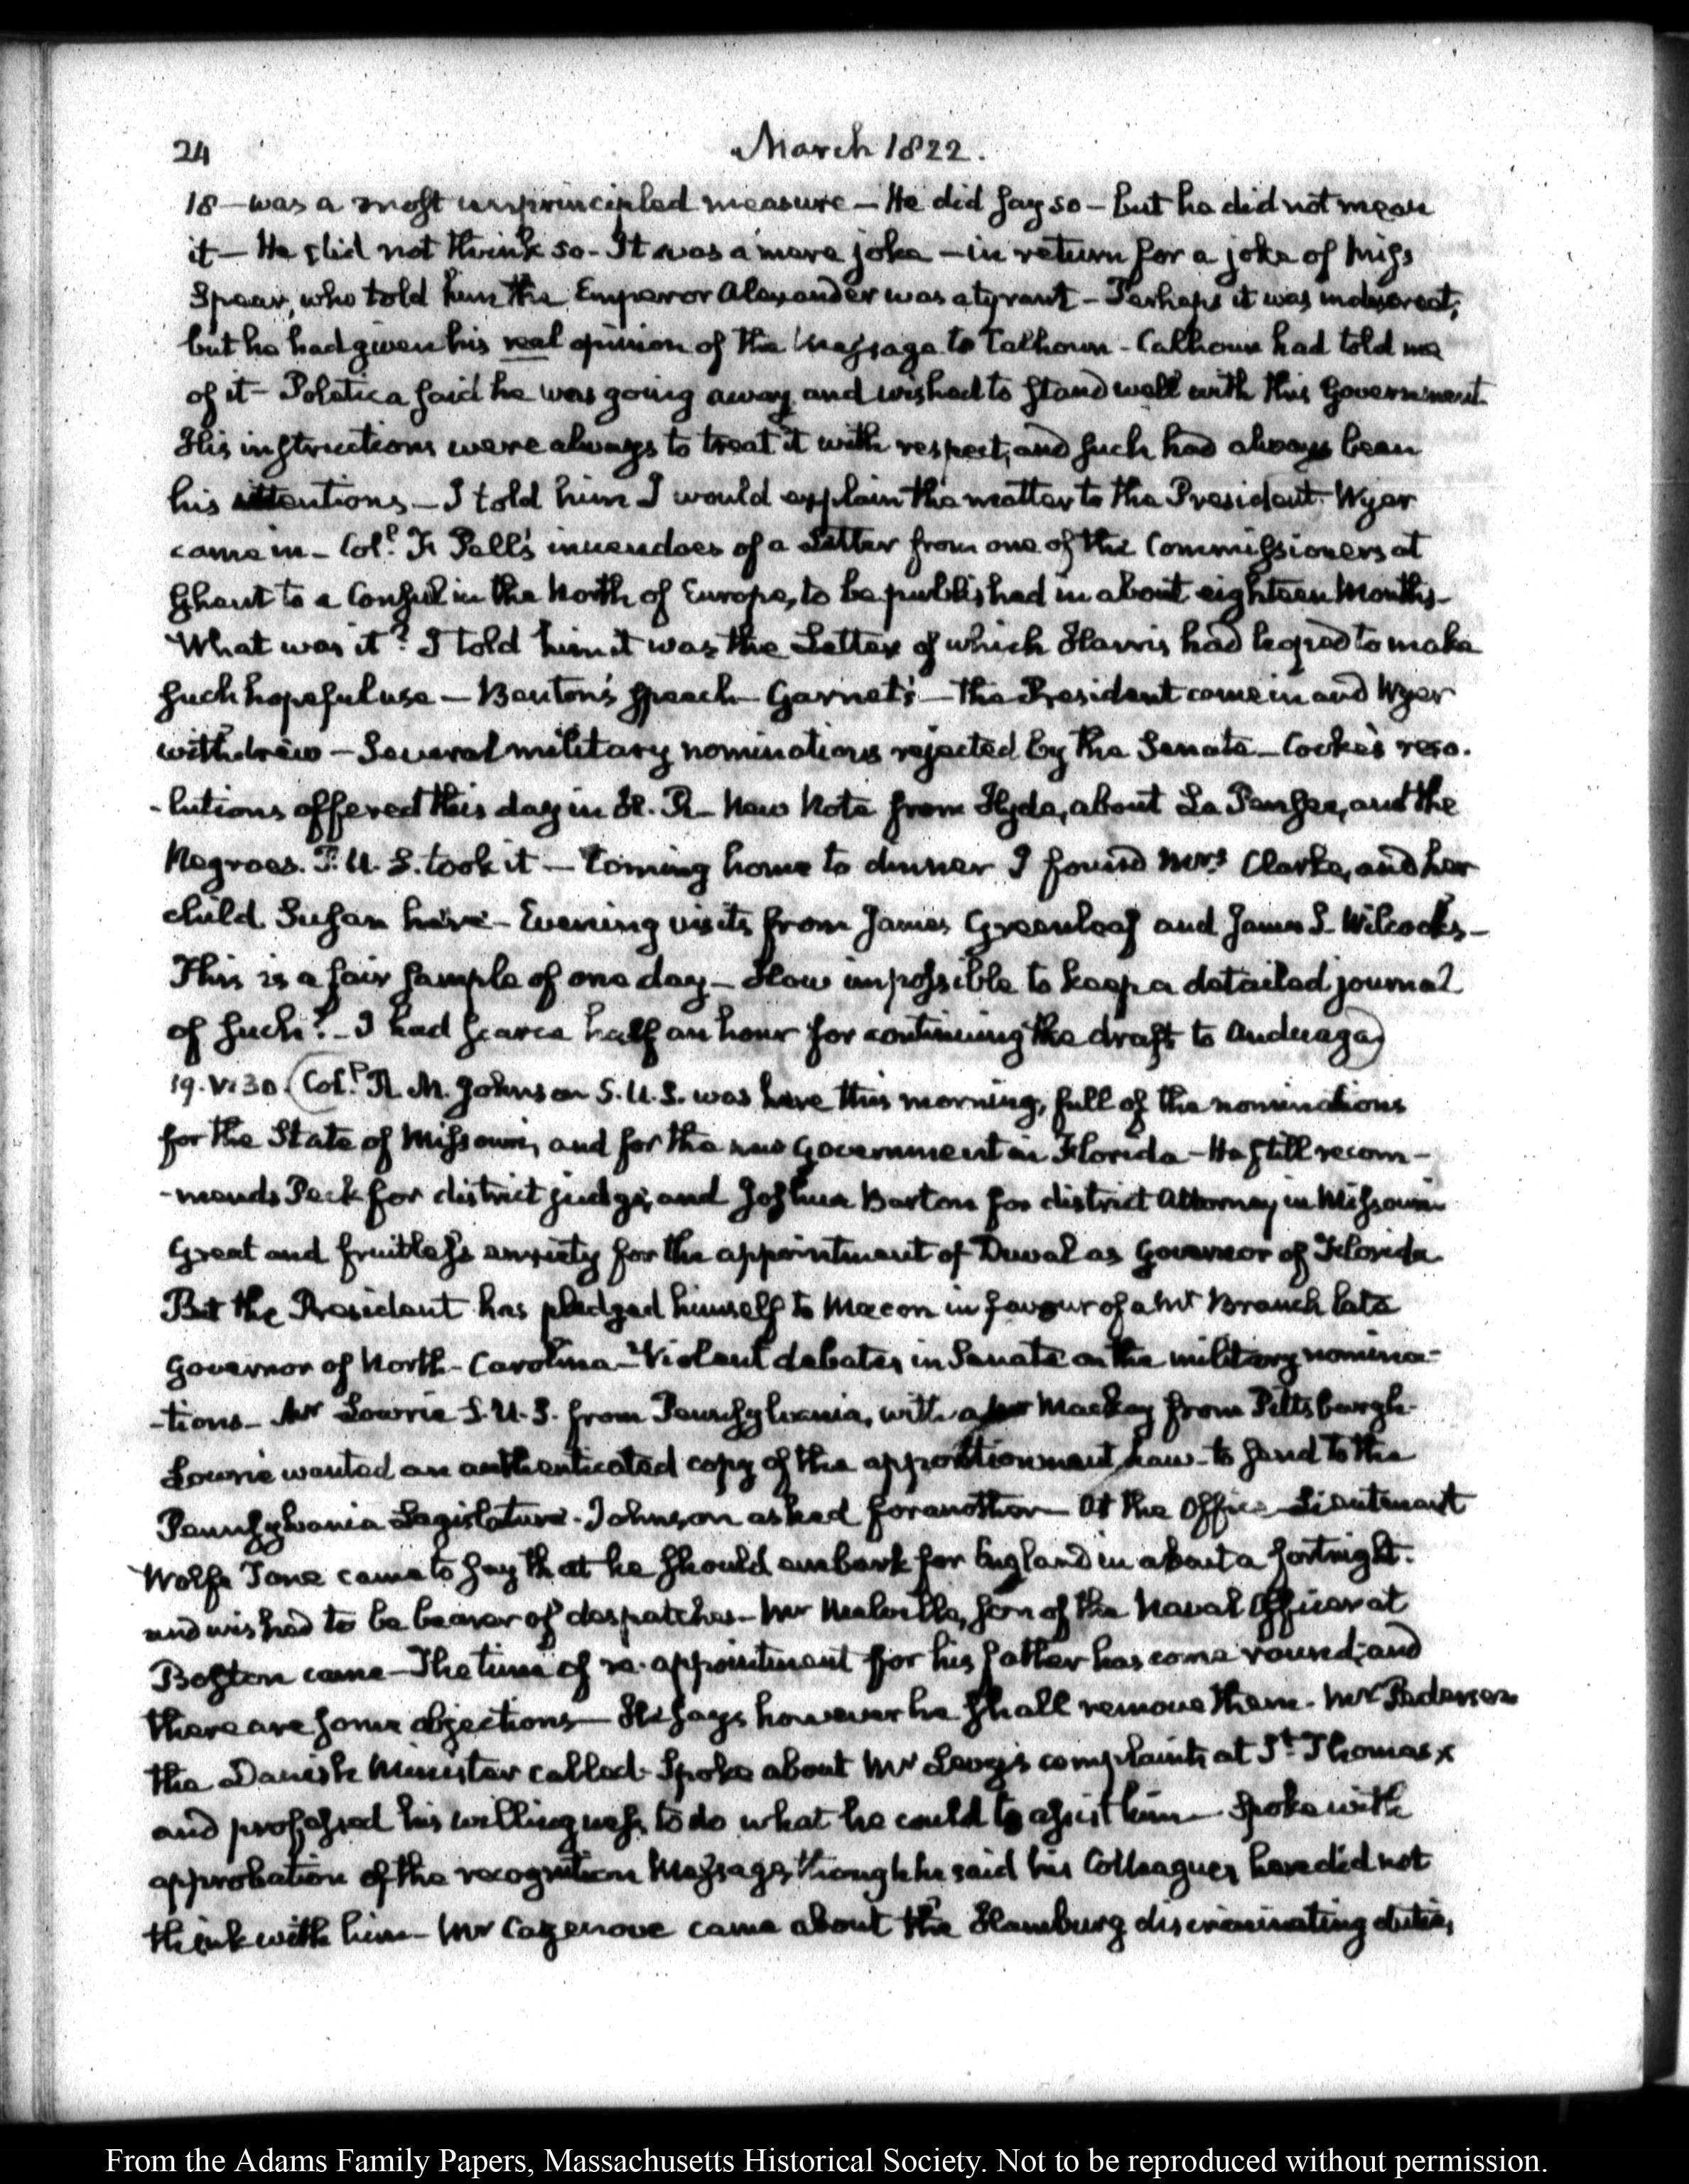 24
March 1822.
18 — was a most unprincipled measure — He did say so — but he did not mean
it — He did not think so - It was a mere joke — in return for a joke of Miss
Spear, who told him the Emperor Alexander was a tyrant - Perhaps it was indiscreet;
but he had given his real opinion of the Message to Calhoun - Calhoun had told me
of it - Poletica said he was going away and wished to stand well with this Government.
His instructions were always to treat it with respect, and such had always been
his intentions — I told him I would explain the matter to the President. Wyer
came in - Coll. Pell's inuendoes of a Letter from one of the Commissioners at
Ghent to a Consul in the North of Europe, to be published in about eighteen Months -
What was it? I told him it was the Letter of which Harris had hoped to make
such hopeful use — Benton's speech - Garnet's — The President came in and Wyer
withdrew — Several military nominations rejected by the Senate — Cocke's reso-
-lutions offered this day in H. R - New Note from Hyde, about La Pensée, and the
Negroes. P. U. S. took it — Coming home to dinner I found Mrs Clarke, and her
child Susan here - Evening visits from James Greenleaf and James S. Wilcocks -
This is a fair sample of one day - How impossible to keep a detailed journal
of such! - I had scarce half an hour for continuing the draft to Anduaga)
19. V:30. (Coll. R. M. Johnson S. U. S. was here this morning, full of the nominations
for the State of Missouri, and for the new Government in Florida - He still recom-
-mends Peck for district judge, and Joshua Barton for district Attorney in Missouri
Great and fruitless anxiety for the appointment of Duval as Governor of Florida
But the President has pledged himself to Macon in favour of a Mr Branch late
Governor of North-Carolina - Violent debates in Senate on the military nomina-
-tions - Mr Lowrie S. U. S. from Pennsylvania, with a Mr Mackay from Pittsburgh.
Lowrie wanted an authenticated copy of the apportionment Law - to send to the
Pennsylvania Legislature - Johnson asked for another - At the Office Lieutenant
Wolfe Tone came to say that he should embark for England in about a fortnight.
and wished to be bearer of despatches - Mr Melville, son of the Naval Officer at
Boston came - The time of re-appointment for his father has come round; and
there are some objections - He says however he shall remove them. Mr Pedersen
the Danish Minister called - Spoke about Mr Levy's complaints at St. Thomas x
and professed his willingness to do what he could to assist him - Spoke with
approbation of the recognition Message, though he said his Colleagues here did not
think with him - Mr Cazenove came about the Hamburg discriminating duties,
From the Adams Family Papers, Massachusetts Historical Society. Not to be reproduced without permission.